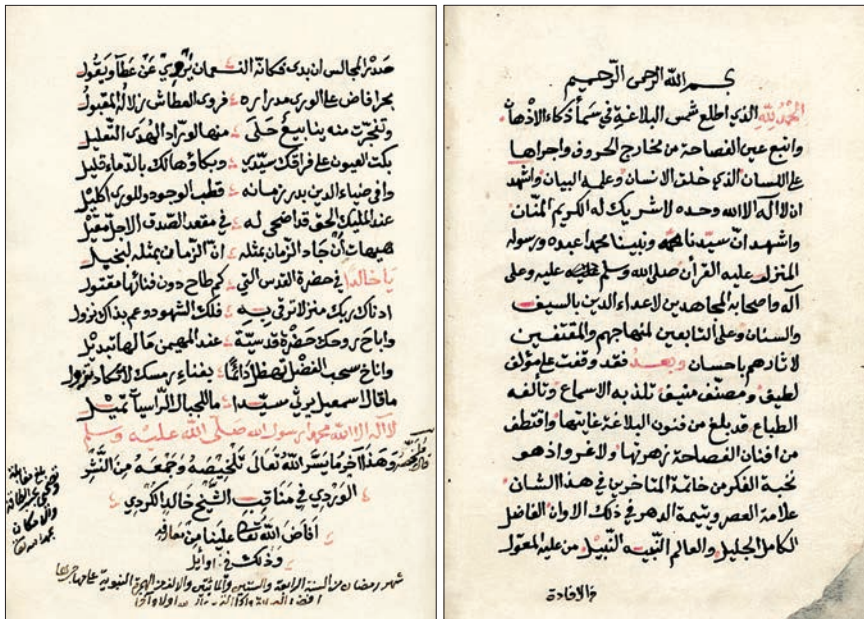 بسم الله الرحمن الرحيم
الحمد لله الذي اطلع شمس البلاغة في سمآ ذكاء الاذهان
وانبع عين الفصاحة من مخارج الحروف واجراها
على اللسان الذي خلق الانسان وعلمه البيان واشهد
ان لا آله الا الله وحده لا شريك له الكريم المنّان
واشهد انّ سيّدنا محمد ونبينا محمدا عبده ورسوله
المنزل عليه القرآن صلى الله وسلم عليه وعلى
آله واصحابه المجاهدين لاعداء الدين بالسيف
والسنان وعلى التابعين لمنهاجهم والمقتفين
لاثارهم باحسان وبعد فقد وقفت على مؤلف
لطيف ومصنّف منيف تلذ به الاسماع وتالفه
الطباع قد بلغ من فنون البلاغة غايتها واقتطف
من افنان الفصاحة زهرتها ولا غرو اذ هو
نخبة الفكر من خاتمة المتاخرين في هذا الشان
علامة العصر ويتيمة الدهر في ذلك الاوان الفاضل
الكامل الجليل والعالم النبيه النبيل من عليه المعول
والافادة
صدر المجالس ان بدى فكانّه النعمان يروي عن عطا ويقول
بحر افاض على الورى مدراره فروى العطاش زلاله المقبول
وتفجّرت منه ينابيع حلى منها لورّاد الهدى التعليل
بكت العيون على فراقك سيّدي وبكاؤها لك بالدماء قليل
وافى ضياء الدين بدر زمانه قطب الوجود وللورى اكليل
عند المليك الحق قد اضحى له في مقعد الصّدق الاجل مقيل
هيهات أن جاد الزمان بمثله انّ الزمان بمثله لبخيل
يا خالدا في حضرة القدس التي كم طاح دون فنائها مقتول
ادناك ربك منزلا ترقى به فلك الشهود ودعم بذاك نزول
واباح روحك حضرة قدسيّة عند المهيمن ما لها تبديل
واناخ سحب الفضل تهطل دائما بفناء رمسك لا تكاد تزول
ما قال اسمعيل يرثي سيدا ما للجبال الرّاسيات تميل
لا آله الا الله محمد رسول الله صلّى الله عليه وسلم
وهذا آخر ما يسّر الله تعالى تلخيصه وجمعه من النّثر
الوردي في مناقب الشّيخ خالد الكردي
افاض الله تعالى علينا من معارفه
وذلك في اوايل
شهر رمضان من السنة الرابعة والستين والمائتين والالف من الهجرة النبوية على صاحبها
افضل الصلاة